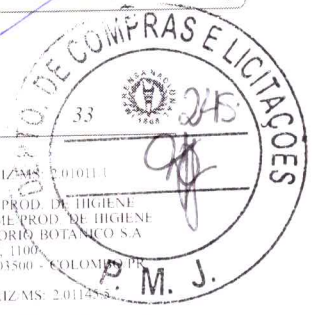 DE COMPRAS E LICITAÇÕES
33
245
IMPRENSA NACIONAL
1808
IZ/MS: 2.01011.1
PROD. DE HIGIENE
ME PROD. DE HIGIENE
ORIO BOTANICO S.A
, 1100
03500 - COLOMBO PR
IZ/MS: 2.01145.5
P. M. J.